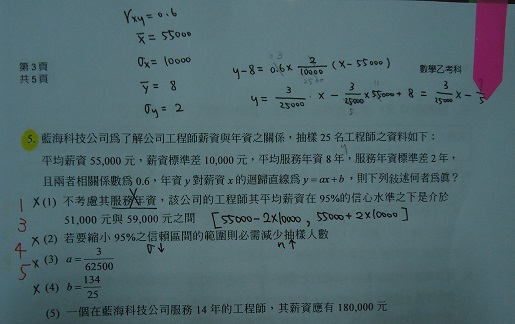 rxy = 0.6
x̄ = 55000
σx = 10000
ȳ = 8
σy = 2
第3頁
共5頁
數學乙考科
y-8 = 0.6 × 2/10000 (x-55000)
y = 3/25000 · x - 3/25000 × 55000 + 8 = 3/25000 x - 7/5
5. 藍海科技公司爲了解公司工程師薪資與年資之關係，抽樣 25 名工程師之資料如下：
平均薪資 55,000 元，薪資標準差 10,000 元，平均服務年資 8 年，服務年資標準差 2 年，
且兩者相關係數爲 0.6，年資 y 對薪資 x 的迴歸直線爲 y = ax + b，則下列敍述何者爲眞？
1 × (1) 不考慮其服務年資，該公司的工程師其平均薪資在 95%的信心水準之下是介於
3 51,000 元與 59,000 元之間 [55000-2×10000, 55000+2×10000]
4 × (2) 若要縮小 95%之信賴區間的範圍則必需減少抽樣人數
σ↓ n↑
5 × (3) a = 3/62500
× (4) b = 134/25
(5) 一個在藍海科技公司服務 14 年的工程師，其薪資應有 180,000 元